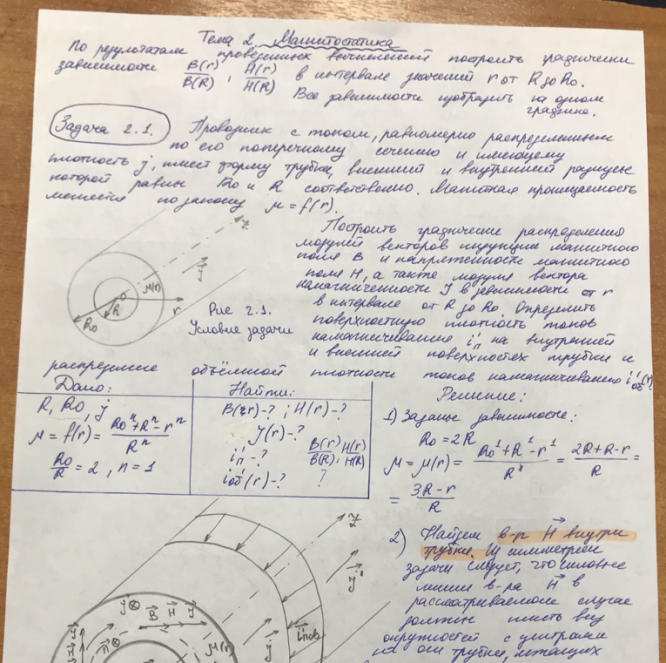 Тема 2. Магнитостатика
По результатам проведенных вычислений построить графически
зависимости B(r)/B(R), H(r)/H(R) в интервале значений r от R до R0.
Все зависимости изобразить на одном
графике.
Задача 2.1. Проводник с током, равномерно распределенным
по его поперечному сечению и имеющему
плотность j, имеет форму трубки, внешний и внутренний радиусы
которой равны R0 и R соответственно. Магнитная проницаемость
меняется по закону μ = f(r).
Построить графически распределения
модулей векторов индукции магнитного
поля B и напряженности магнитного
поля H, а также модуля вектора
намагниченности J в зависимости от r
в интервале от R до R0. Определить
поверхностную плотность токов
намагничивания i'п на внутренней
и внешней поверхностях трубки и
распределение объёмной плотности токов намагничивания i'об(r).
z
j
μ(r)
O
R
R0
r
Рис 2.1.
Условие задачи
Дано:
R, R0, j
μ = f(r) = (R0^n + R^n - r^n)/R^n
R0/R = 2, n = 1
Найти:
B(r)-? ; H(r)-?
J(r)-?
i'п-? B(r)/B(R); H(r)/H(R)
i'об(r)-? ?
Решение:
1) Заданые зависимости:
R0 = 2R
μ = μ(r) = (R0^1 + R^1 - r^1)/R^1 = (2R + R - r)/R =
= (3R - r)/R
2) Найдем в-р H внутри
трубки. Из симметрии
задачи следует, что силовые
линии в-ра H в
рассматриваемом случае
должны иметь вид
окружностей с центрами
на оси трубки, лежащих
z
j
J
B
H
J
μ(r)
i'пов